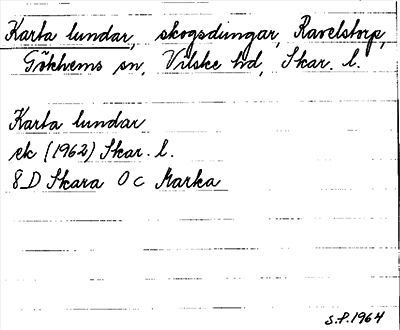 Karta lundar, skogsdungar, Ravelstorp,
Gökhems sn, Vilske hd, Skar. l.
Karta lundar
ek (1962) Skar. l.
8D Skara 0 c Marka
S.P. 1964